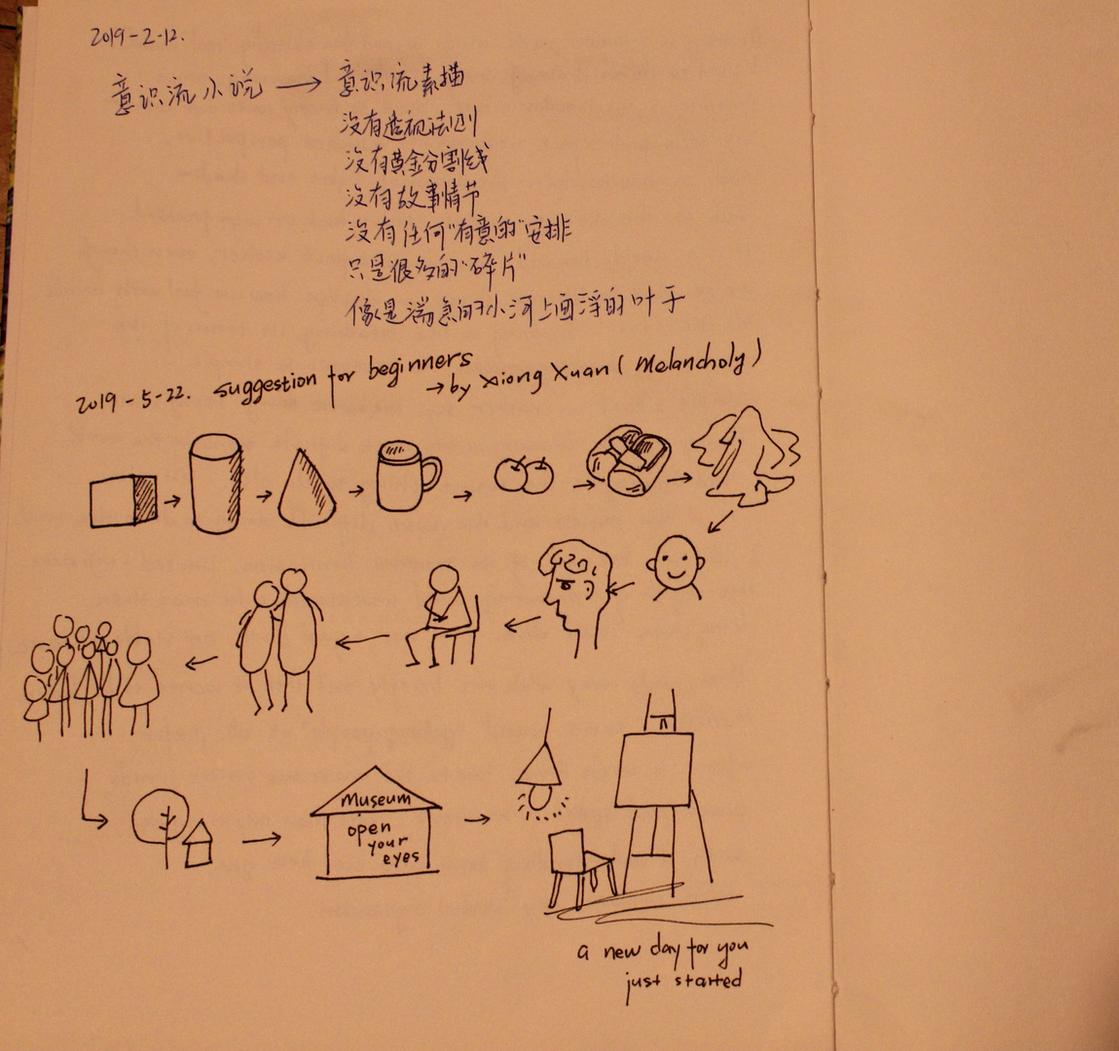 2019-2-12.
意识流小说 → 意识流素描
没有透视法则
没有黄金分割线
没有故事情节
没有任何“有意的”安排
只是很多的“碎片”
像是湍急的小河上面浮的叶子
2019-5-22. suggestion for beginners
→ by Xiong Xuan (Melancholy)
Museum
open
your
eyes
a new day for you
just started